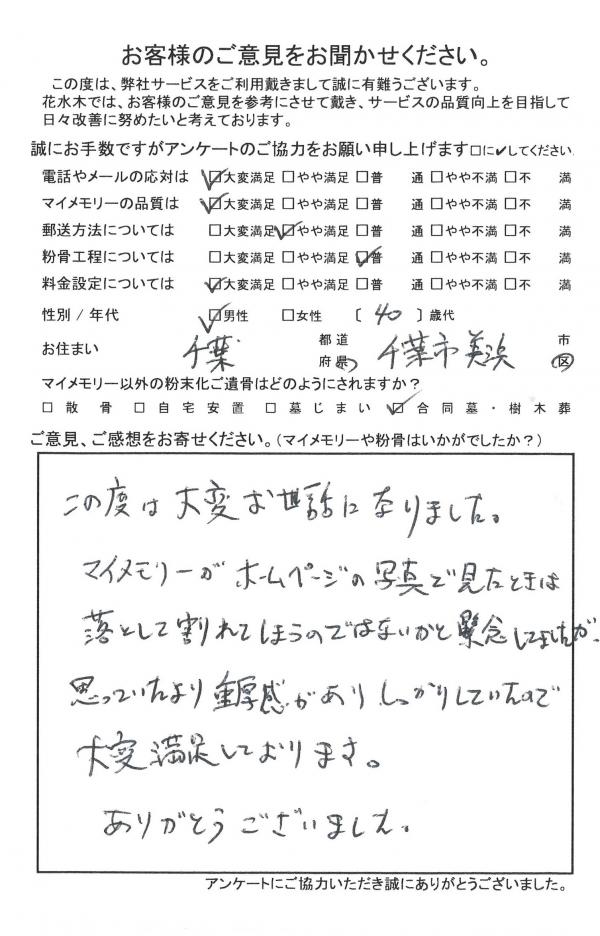 お客様のご意見をお聞かせください。
この度は、弊社サービスをご利用戴きまして誠に有難うございます。
花水木では、お客様のご意見を参考にさせて戴き、サービスの品質向上を目指して
日々改善に努めたいと考えております。
誠にお手数ですがアンケートのご協力をお願い申し上げます□に✔してください。
電話やメールの応対は ☑大変満足 □やや満足 □普 通 □やや不満 □不 満
マイメモリーの品質は ☑大変満足 □やや満足 □普 通 □やや不満 □不 満
郵送方法については □大変満足 ☑やや満足 □普 通 □やや不満 □不 満
粉骨工程については □大変満足 □やや満足 ☑普 通 □やや不満 □不 満
料金設定については ☑大変満足 □やや満足 □普 通 □やや不満 □不 満
性別 / 年代 ☑男性 □女性 〔 40 〕歳代
お住まい 千葉 都道府県 千葉市美浜 市区
マイメモリー以外の粉末化ご遺骨はどのようにされますか?
□散骨 □自宅安置 □墓じまい ☑合同墓・樹木葬
ご意見、ご感想をお寄せください。(マイメモリーや粉骨はいかがでしたか?)
この度は大変お世話になりました。
マイメモリーがホームページの写真で見たときは
落として割れてしまうのではないかと懸念してましたが、
思っていたより重厚感がありしっかりしていたので
大変満足しております。
ありがとうございました。
アンケートにご協力いただき誠にありがとうございました。